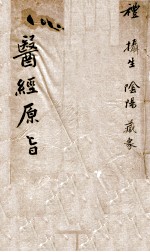 禮 攝生 陰陽 藏象
醫經原旨